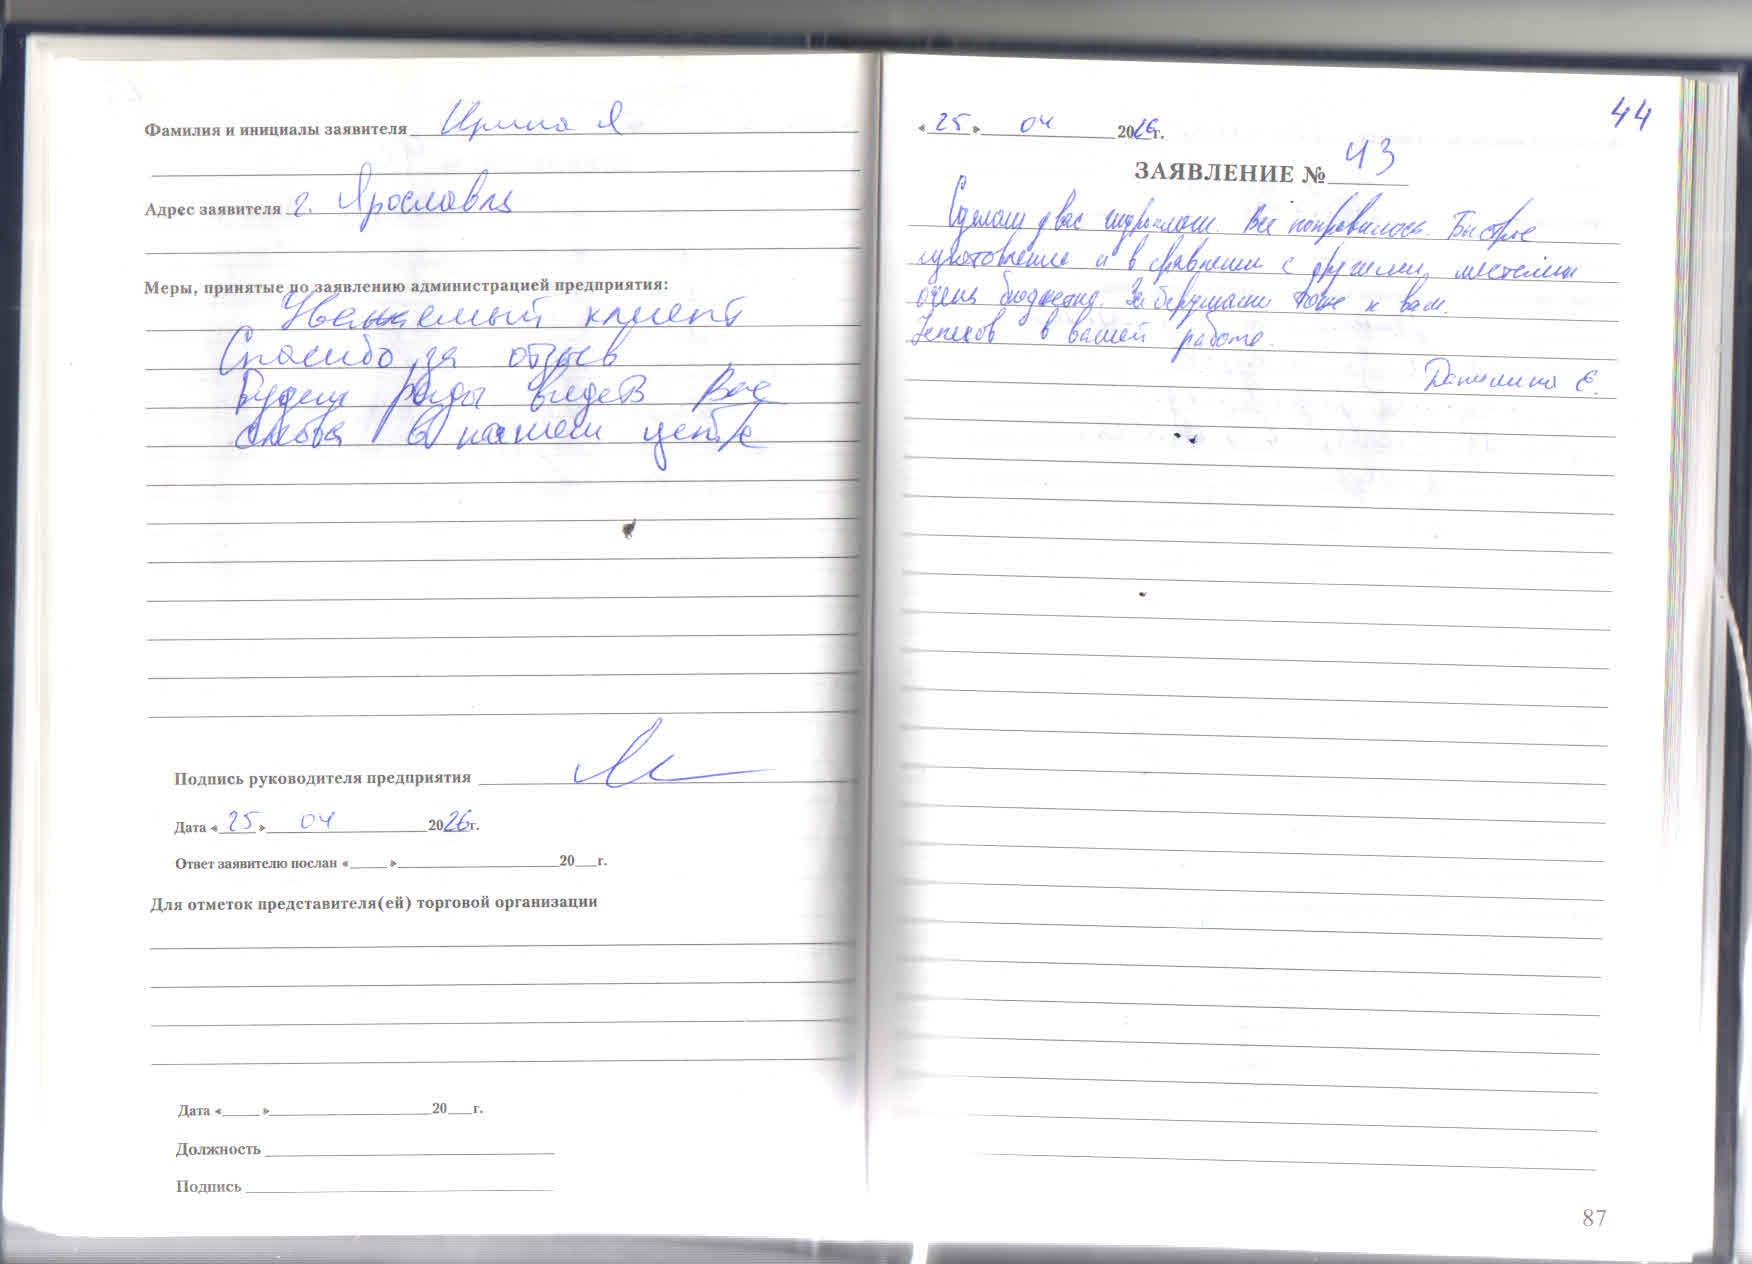 Фамилия и инициалы заявителя Ирина Я
Адрес заявителя г. Ярославль
Меры, принятые по заявлению администрацией предприятия:
Уважаемый клиент
Спасибо за отзыв
Будем рады видеть Вас
снова в нашем центре
Подпись руководителя предприятия
Дата «25» 04 2026г.
Ответ заявителю послан «____»____20__г.
Для отметок представителя(ей) торговой организации
Дата «____»____20__г.
Должность
Подпись
44
«25» 04 2026г.
ЗАЯВЛЕНИЕ № 43
Сделали у вас Все понравилось. Быстрое
изготовление и в сравнении с другими местами
очень бюджетно. За тоже к вам.
Успехов в вашей работе.
Данилина Е.
87